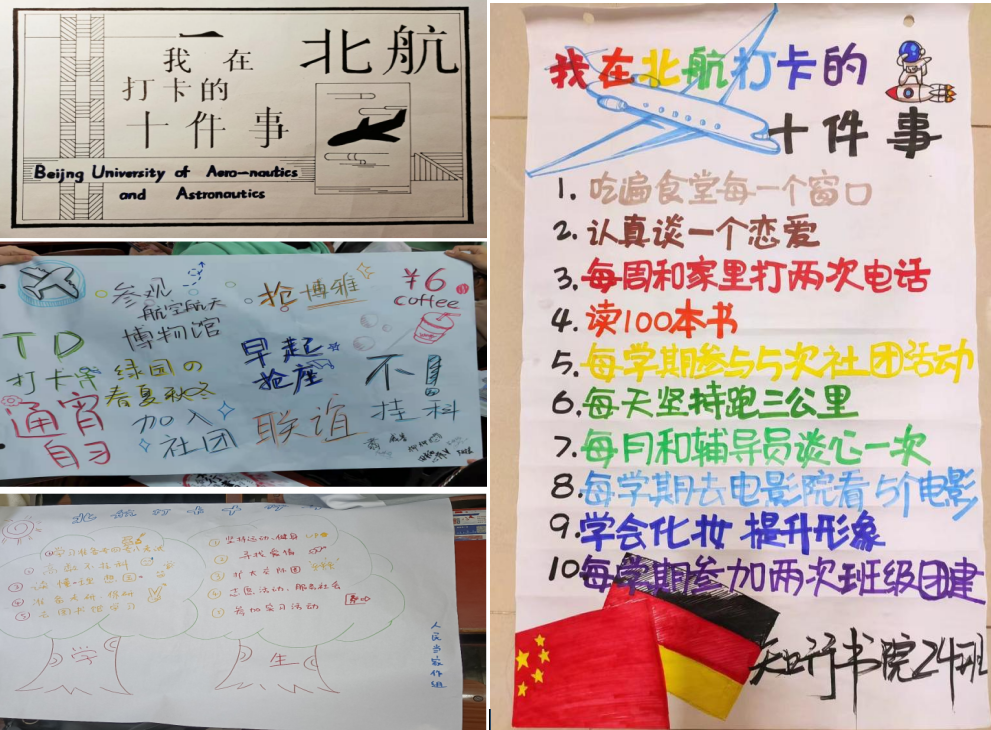 北航
我在
打卡的
十件事
Beijng University of Aero-nautics
and Astronautics
参观
航空航天
博物馆
抢博雅
¥6
coffee
TD
打卡
绿园の
春夏秋冬
早起
抢座
不
挂科
通宵
自习
加入
社团
联谊
北航打卡十
高数不挂科
读懂理想国
去图书馆学习
坚持运动,健身
寻找食悟
扩大交际圈
志愿活动,服务社会
参加实习活动
学
生
人民当家作组
我在北航打卡的
十件事
1. 吃遍食堂每一个窗口
2. 认真谈一个恋爱
3. 每周和家里打两次电话
4. 读100本书
5. 每学期参与5次社团活动
6. 每天坚持跑三公里
7. 每月和辅导员谈心一次
8. 每学期去电影院看5个电影
9. 学会化妆 提升形象
10. 每学期参加两次班级团建
知行书院24班